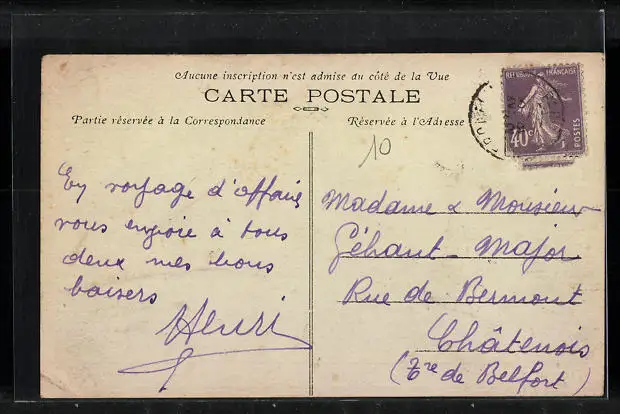 Aucune inscription n'est admise du côté de la Vue
CARTE POSTALE
Partie réservée à la Correspondance
Réservée à l'Adresse
REPUBLIQUE FRANÇAISE
40c
POSTES
10
En voyage d'affaire
vous envoie à tous
deux mes bons
baisers
Henri
Madame & Monsieur
Géhant-Major
Rue de Bermont
Châtenois
(Tre de Belfort)